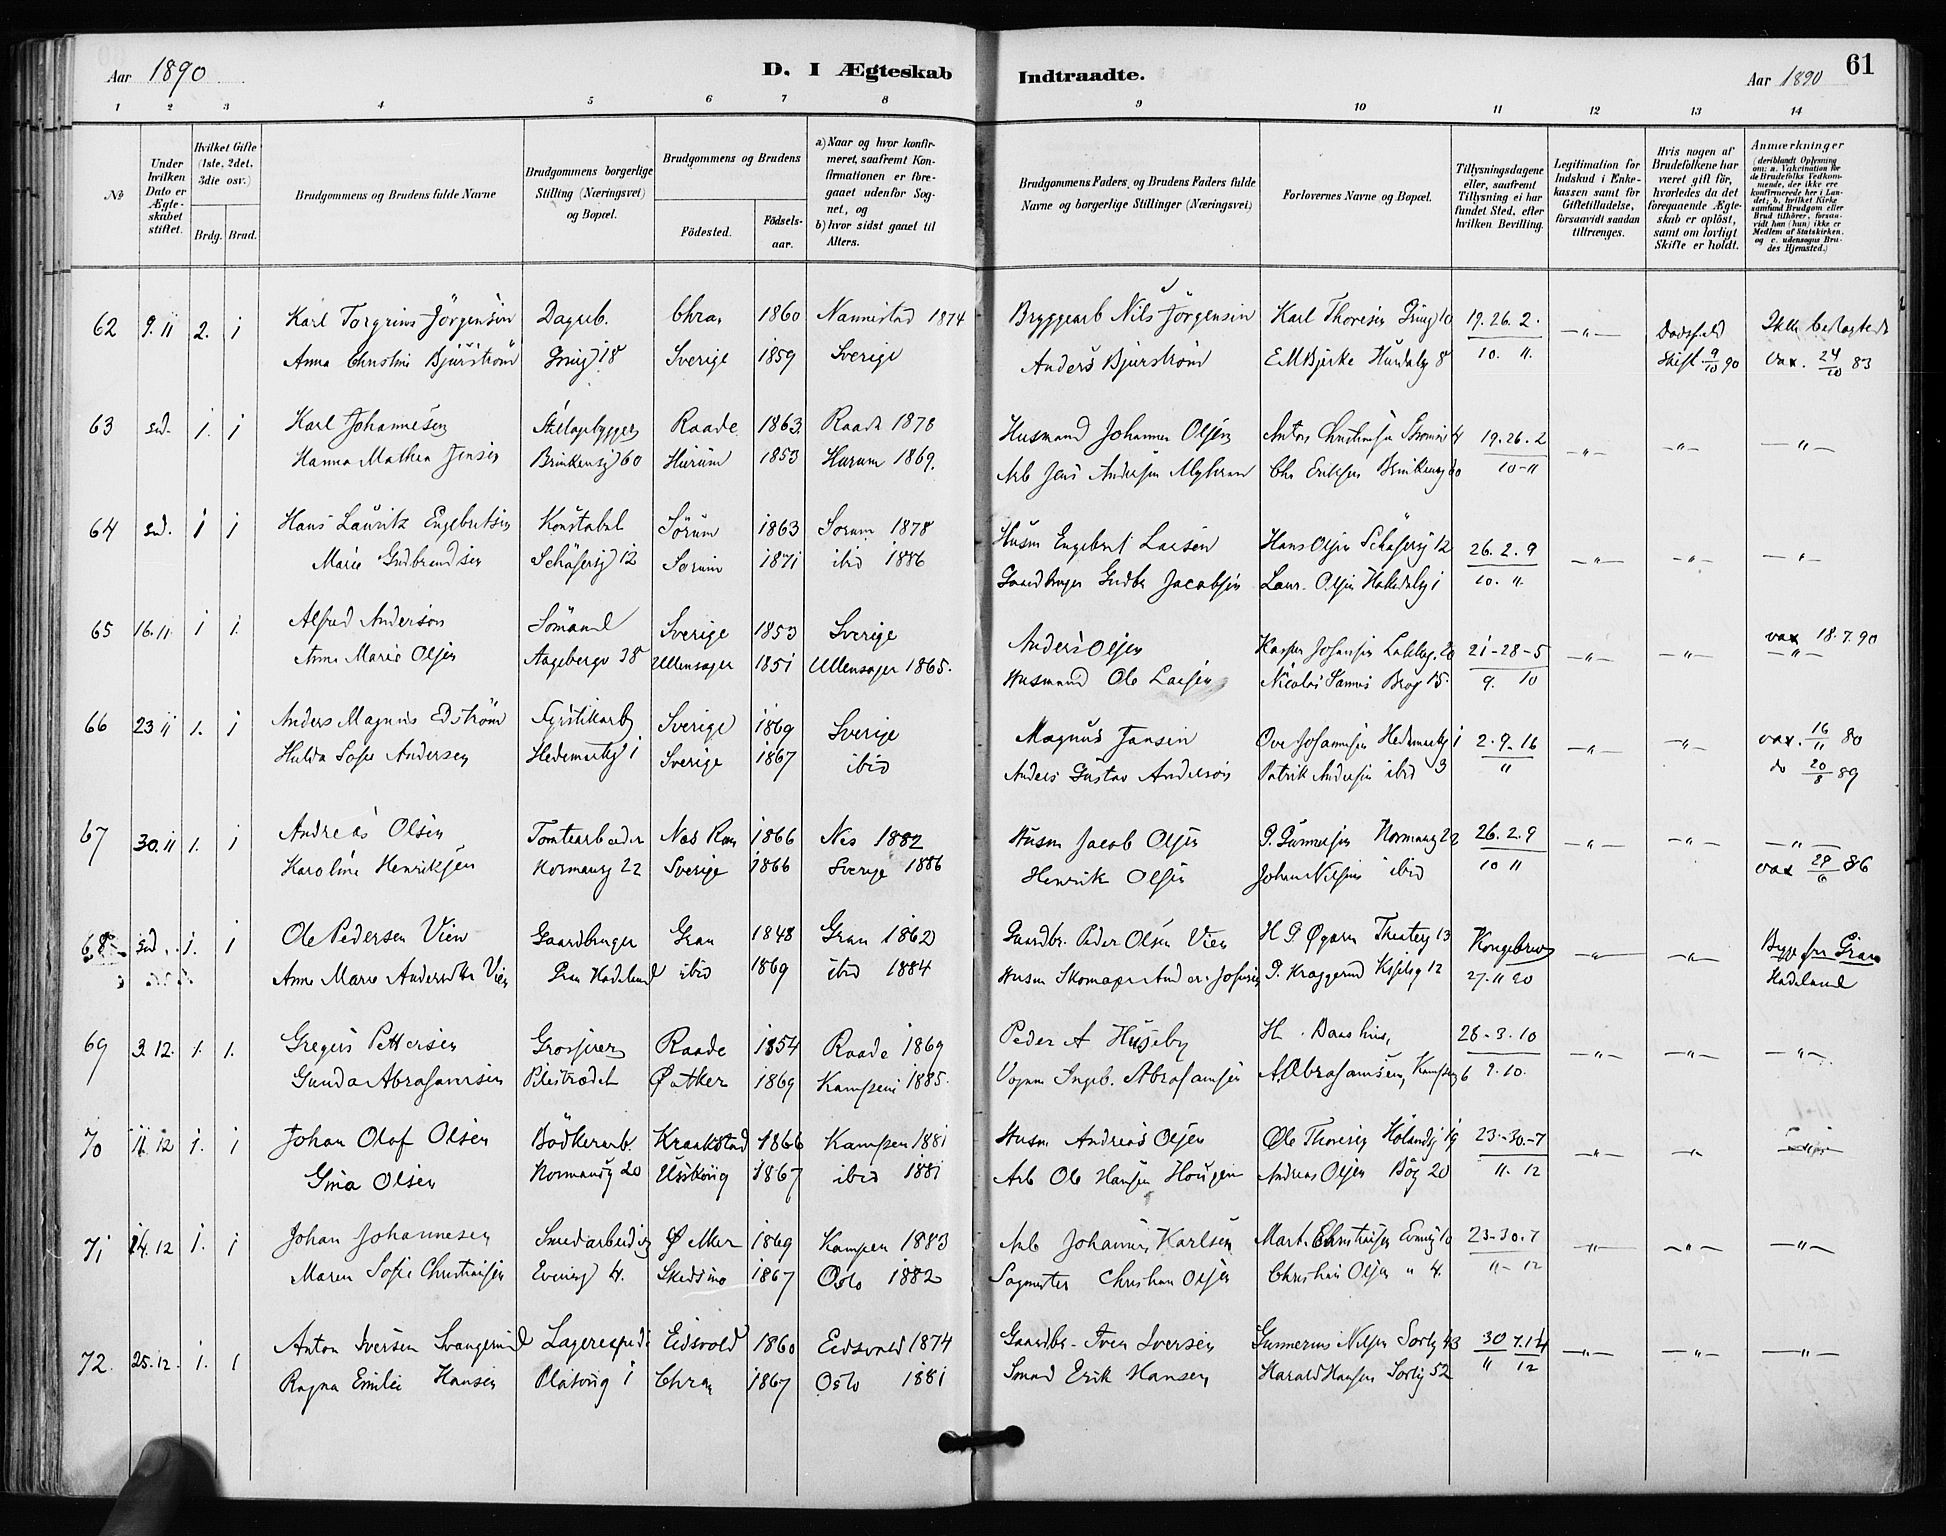 Aar 1890
D. I Ægteskab Indtraadte.
Aar 1890
61
1 2 3 4 5 6 7 8 9 10 11 12 13 14
No
Under hvilken Dato er Ægteskabet stiftet.
Hvilket Gifte (1ste, 2det, 3die osv.)
Brdg. Brud.
Brudgommens og Brudens fulde Navne
Brudgommens borgerlige Stilling (Næringsvei) og Bopæl.
Brudgommens og Brudens
Fødested.
Fødselsaar.
a) Naar og hvor konfirmeret, saafremt Konfirmationen er foregaaet udenfor Sognet, og
b) hvor sidst gaaet til Alters.
Brudgommens Faders og Brudens Faders fulde Navne og borgerlige Stillinger (Næringsvei)
Forlovernes Navne og Bopæl.
Tillysningsdagene eller, saafremt Tillysning ei har fundet Sted, efter hvilken Bevilling.
Legitimation for Indskud i Enkekassen samt for Giftetilladelse, forsaavidt saadan tiltrænges.
Hvis nogen af Brudefolkene har været gift før, hvorledes da det foregaaende Ægteskab er opløst, samt om lovligt Skifte er holdt.
Anmærkninger
(deriblandt Oplysning om: a. Vakcination for de Brudefolks Vedkommende, der ikke ere konfirmerede her i Landet; b. hvilket Kirkesamfund Brudgom eller Brud tilhører, forsaavidt han (hun) ikke er Medlem af Statskirken, og c. udensogns Brudes Hjemsted.)
62 9.11 2. 1 Karl Torgrims Jörgensen Dagarb. Chra 1860 Nannestad 1874 Bryggearb Nils Jörgensen Karl Thoresen 10 19.26.2. —"— Dødsfald
Anna Christine Bjurström 18 Sverige 1859 Sverige Anders Bjurström E M Bjerke 8 10. 11. Skift. 9/10 90 Vax. 24/10 83
63 sd. 1. 1 Karl Johannesen Raade 1863 Raade 1878 Husmand Johannes Olsen Anton Christensen 4 19.26.2 —"— —"— —"—
Hanna Mathea Jensen 60 Hurum 1853 Hurum 1869. Arb Jens Andersen Chr Eriksen 60 10-11
64 sd. 1 1 Hans Lauritz Engebretsen Konstabel Sörum 1863 Sorum 1878 Husm Engebret Larsen Hans Olsen Schäfersg 12 26.2.9 —"— —"— —"—
Marie Gudbrandsen Schäfersg 12 Sorum 1871 ibid 1886 Gaardbruger Gudbr Jacobsen Laur. Olsen 1 10. 11.
65 16.11. 1 1. Alfred Anderson Sömand Sverige 1853 Sverige Anders Olsen Kasper Johansen 20 21-28-5 —"— —"— vax 18.7.90
Anne Marie Olsen Aagebergv 38 Ullensager 1851 Ullensager 1865. Husmand Ole Larsen Nicolai 15. 9. 10 —"—
66 23 11 1. 1 Anders Magnus Edström Sverige 1869 Sverige Magnus Jansen Ove Johannesen Hedemarksg 1 2.9.16 —"— —"— vax. 16/11 80
Hulda Sofie Andersen Hedemarksg 1 Sverige 1867 ibid Anders Gustav Anderson Patrik Andersen ibid 3 11 do 20/8 89
67 30.11 1. 1 Andreas Olsen Tomtearbeider Nes Rom 1866 Nes 1882 Husm Jacob Olsen P. Gunnersen Normansg 22 26.2.9 —"— —"— —"—
Karoline Henriksen Normansg 22 Sverige 1866 Sverige 1886 Henrik Olsen Johan Nilsen ibid 10 11 vax 29/6 86
68 sd. 1. 1 Ole Pedersen Vien Gaardbruger Gran 1848 Gran 1862 Gaardbr. Peder Olsen Vien H P Øgaren Theaterg 13 Kongebrev —"— —"— Bygg for Gran
Anne Marie Andersdtr Vien Gran Hadeland ibid 1869 ibid 1884 Husm Skomager P. Kraggerud 12 27.11 90 Hadeland
69 3.12. 1. 1. Gregus Pettersen Grosserer Raade 1854 Raade 1869 Peder A Huseby H. 28-3.10 —"— —"— —"—
Gunda Abrahamsen Pilestrædet Ø Aker 1869 Kampen 1885. Vognm Ingeb. Abrahamsen A. Abrahamsen, 6 9.10.
70 11. 12 1. 1 Johan Olaf Olsen Bödkerarb. Kraakstad 1866 Kampen 1881 Husm Andreas Olsen Ole Thoresen Hölandsg 19 23-30.-7 —"— —"—
Gina Olsen Normansg 20 1867 ibid 1881 Arb Ole Hansen Andreas Olsen Bög 20 11. 12
71 14.12 1. 1 Johan Johannesen Smedarbeider Ø Aker 1869 Kampen 1883 Arb Johannes Karlsen Mart. Christiansen 10 23-30.7 —"— —"— —"—
Maren Sofie Christiansen 4. Skedsmo 1867 Oslo 1882 Sagmester Christian Olsen Christian Olsen " 4. 11- 12
72. 25.12. 1. 1 Anton Iversen Svangerud Lagerexped Eidsvold 1860 Eidsvold 1874 Gaardbr. Iver Iversen Gunnerius Nilsen Sorlig 43 30 7.14 —"— —"— —"—
Ragna Emilie Hansen 1 Chra 1867 Oslo 1881 Smed Erik Hansen Harald Hansen Sorlig 52 11 12